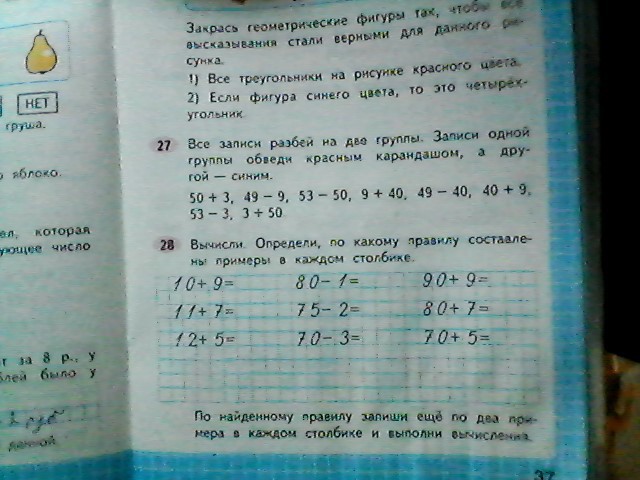 НЕТ
груша.
яблоко.
которая
ующее число
за 8 р., у
было у
данной
Закрась геометрические фигуры так, чтобы все
высказывания стали верными для данного ри-
сунка.
1) Все треугольники на рисунке красного цвета.
2) Если фигура синего цвета, то это четырёх-
угольник
27 Все записи разбей на две группы. Записи одной
группы обведи красным карандашом, а дру-
гой — синим.
50 + 3, 49 − 9, 53 − 50, 9 + 40, 49 − 40, 40 + 9,
53 − 3, 3 + 50
28 Вычисли. Определи, по какому правилу составле-
ны примеры в каждом столбике.
10+9= 80−1= 90+9=
11+7= 75−2= 80+7=
12+5= 70−3= 70+5=
По найденному правилу запиши ещё по два при-
мера в каждом столбике и выполни вычисления.
37